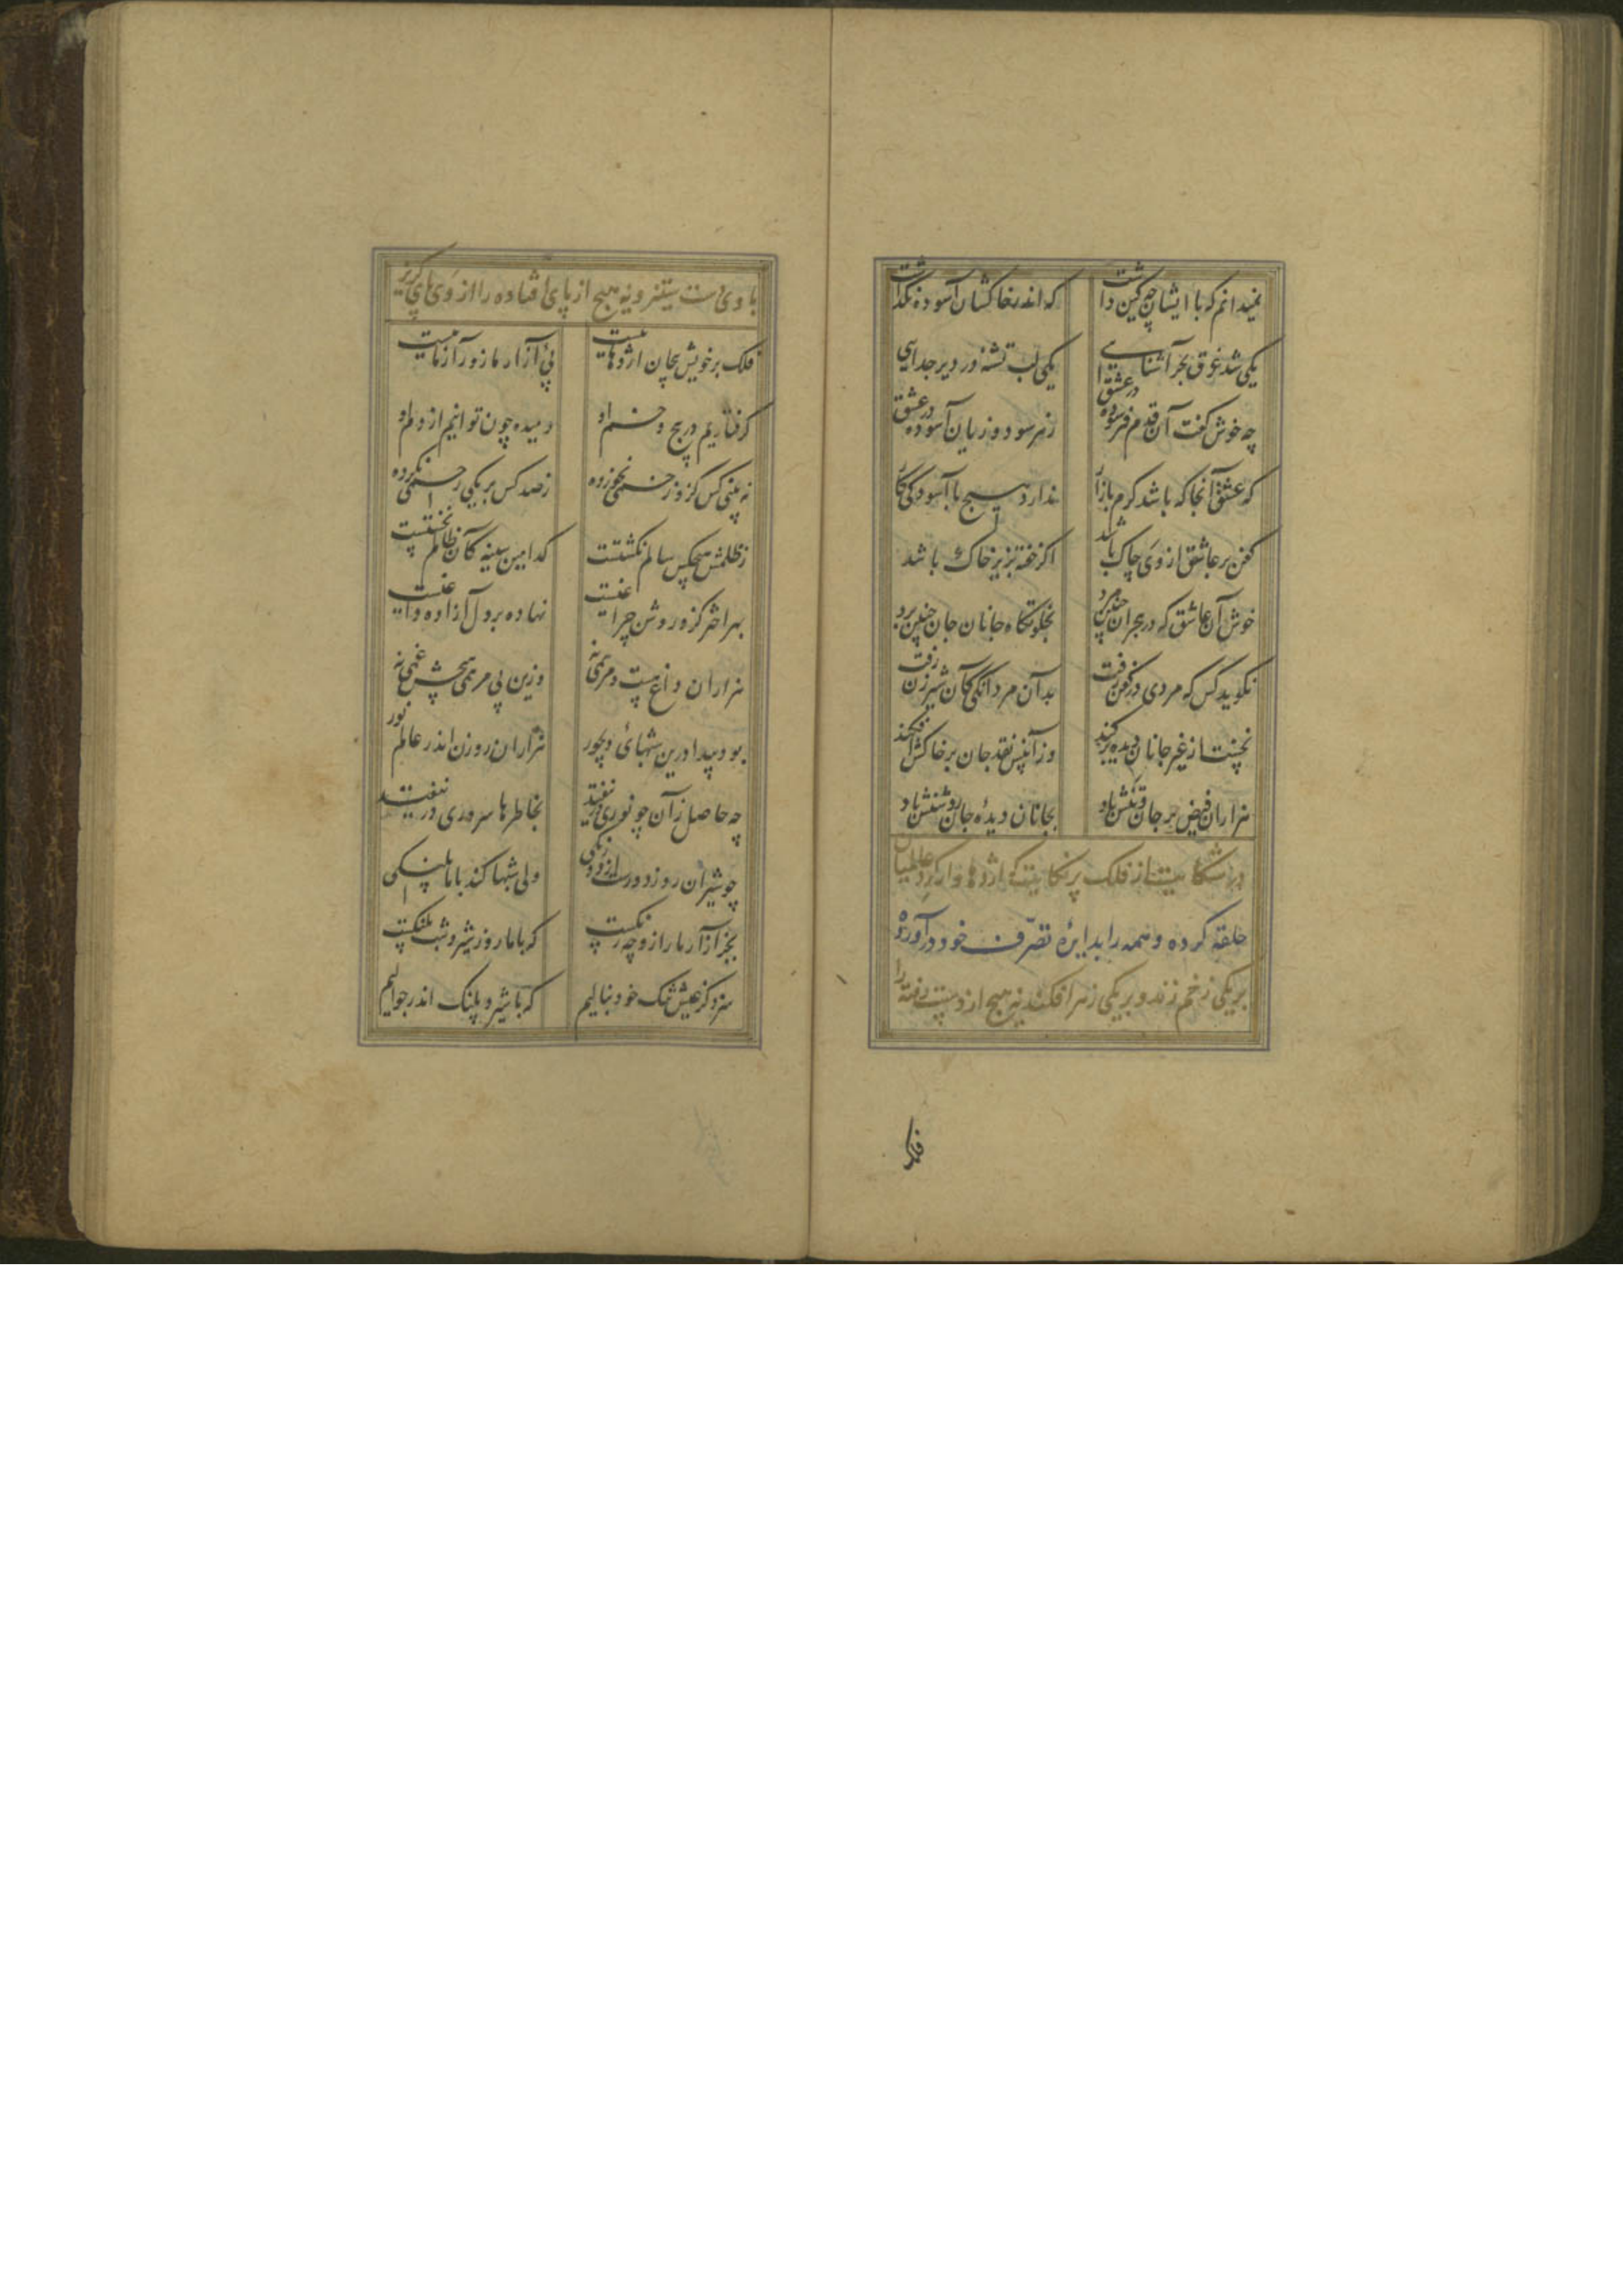 نمیدانم که با ایشان چه کین داشت که اندر خاکشان آسوده نگذاشت
یکی شد غرق بحر آشنایی یکی لب تشنه در دیر جدایی
چه خوش گفت آن قدم فرسوده در عشق زهر سود و زیان آسوده در عشق
که عشق آنجا که باشد کرم بازار ندارد هیچ با آسودگی کار
کفن بر عاشق از وی چاک باشد اگر خفته بزیر خاک باشد
خوش آن عاشق که در هجران چنین مرد بخلوتگاه جانان جان چنین برد
نگوید کس که مردی در کفن رفت بدان مردانگی کان شیرزن رفت
نخست از غیر جانان دیده برکند وز آنپس نقد جان بر خاکش افکند
هزاران فیض بر جان و تنش باد بجانان دیدهٔ جان روشنش باد
در شکایت از فلک پر نکایت که اژدهاوار گرد عالمیان
حلقه کرده و همه را بدایرهٔ تصرّف خود درآورده
بر یکی زخم زند و بر یکی زهر افکند نه هیچ از دست رفته را
فلک
با وی دست ستیز و نه هیچ از پای افتاده را از وی پای گریز
فلک بر خویش پیچان اژدهاییست پی آزار ما زورآزماییست
گرفتاریم در پیچ و خم او رمیده چون توانیم از دم او
نه بینی کس کزو زخمی نخورده ز صد کس بر یکی رحمی نکرده
ز ظلمش هیچکس سالم نگشتست کدامین سینه کان ظالم نخستست
بهر اختر کزو روشن چراغیست نهاده بر دل آزاده داغیست
هزاران داغ هست و مرهمی نه وزین بی مرهمی هیچش غمی نه
بود پیدا درین شبهای دیجور هزاران روزن اندر عالم نور
چه حاصل زآن چو نوری در نیفتد بخاطرها سروری در نیفتد
چو شیران روز دورست از دو رنگی ولی شبها کند با ما پلنگی
بجز آزار ما را زو چه رنگست که با ما روز شیر و شب پلنگست
سزد کز عیش تنگ خود بنالیم که با شیر و پلنگ اندر جوالیم